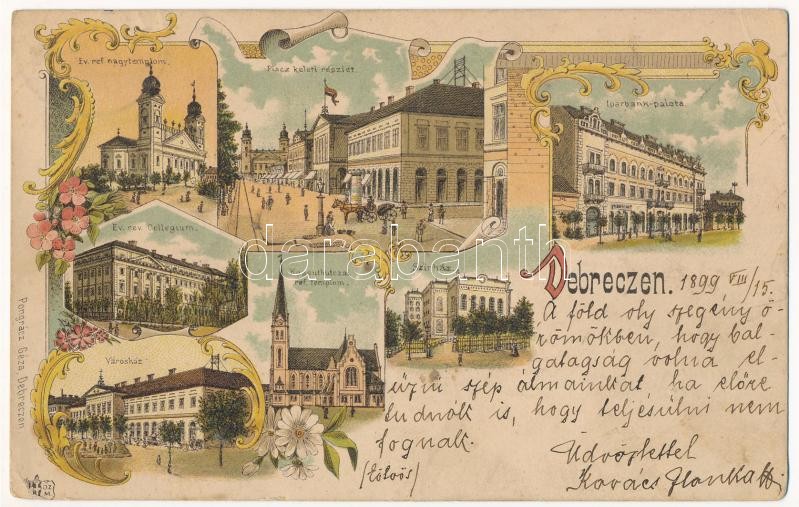 Ev. ref. nagytemplom.
Piacz keleti részlet.
Iparbank-palota.
Ev. rev. Collegium.
ref. templom.
Színház.
Városház
Pongrácz Géza, Debreczen
darabanth.com
Debreczen. 1899 VIII/15.
A föld oly szegény ö-
römökben, hogy bal-
gatagság volna el-
űzni szép álmainkat ha előre
tudnok is, hogy teljesülni nem
fognak.
(Eötvös)
Üdvözlettel
Kovács Ilonka